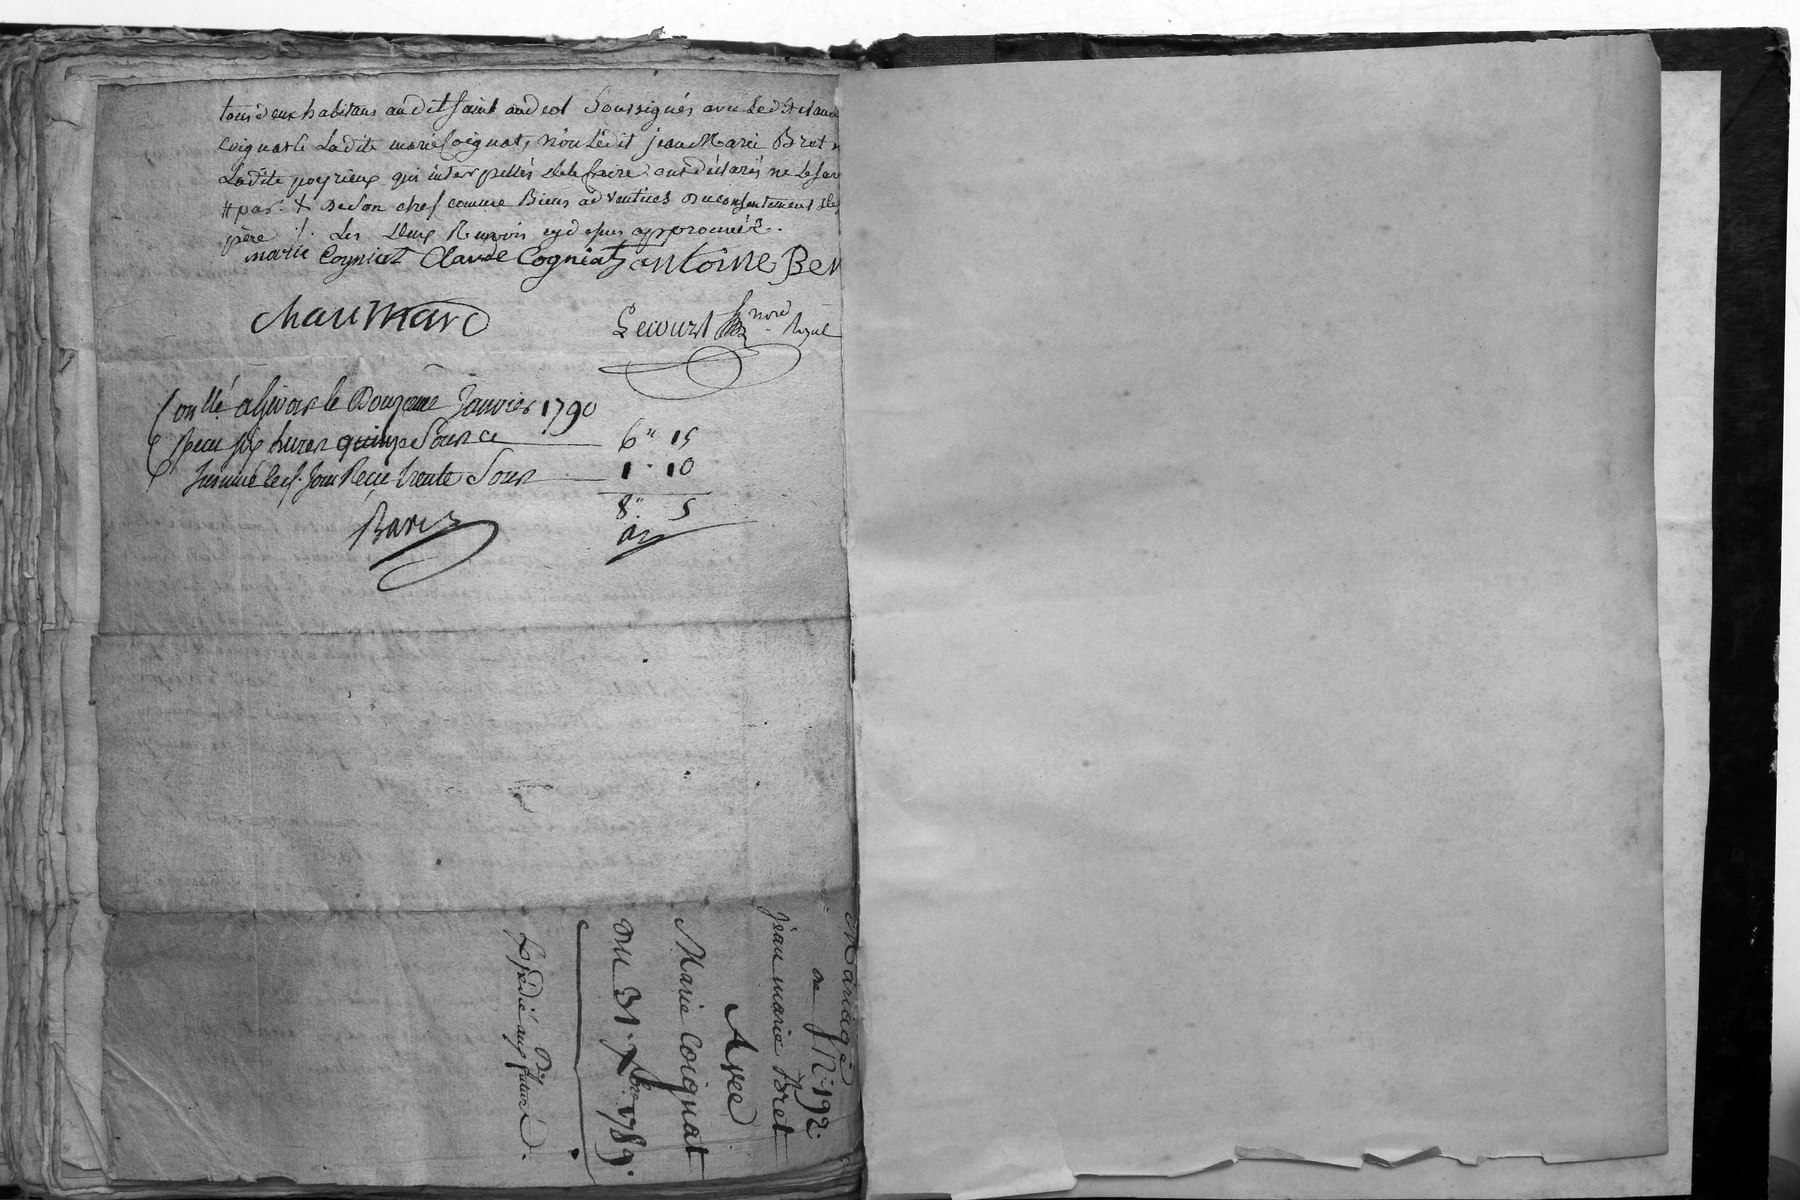 tous deux habitans audit Saint andeol Soussignés avec Ledit Claude
Coignat & Ladite marie Coignat, non Ledit jean Marie Bret n
Ladite poyrieux qui interpellés de le faire ont déclarés ne le Sav
# par. X de Son chef comme Biens adventices du consentement de
père ./. Les deux Renvois cy dessus approuvés.
marie Cogniat Claude Cogniat antoine Ber
Chaumard
Lecourt nore Royal
Conllé a Givors le Douzeme Janvier 1790
Reçu six livres quinze Sours ce 6" 15
Insinué led. Jour Reçu trente Sous 1 . 10
8" 5
Mariage
N. 192.
de jean marie Bret
Avec
Marie Coignat
Du 31. Xbre 1789.
Expédié aux futurs.